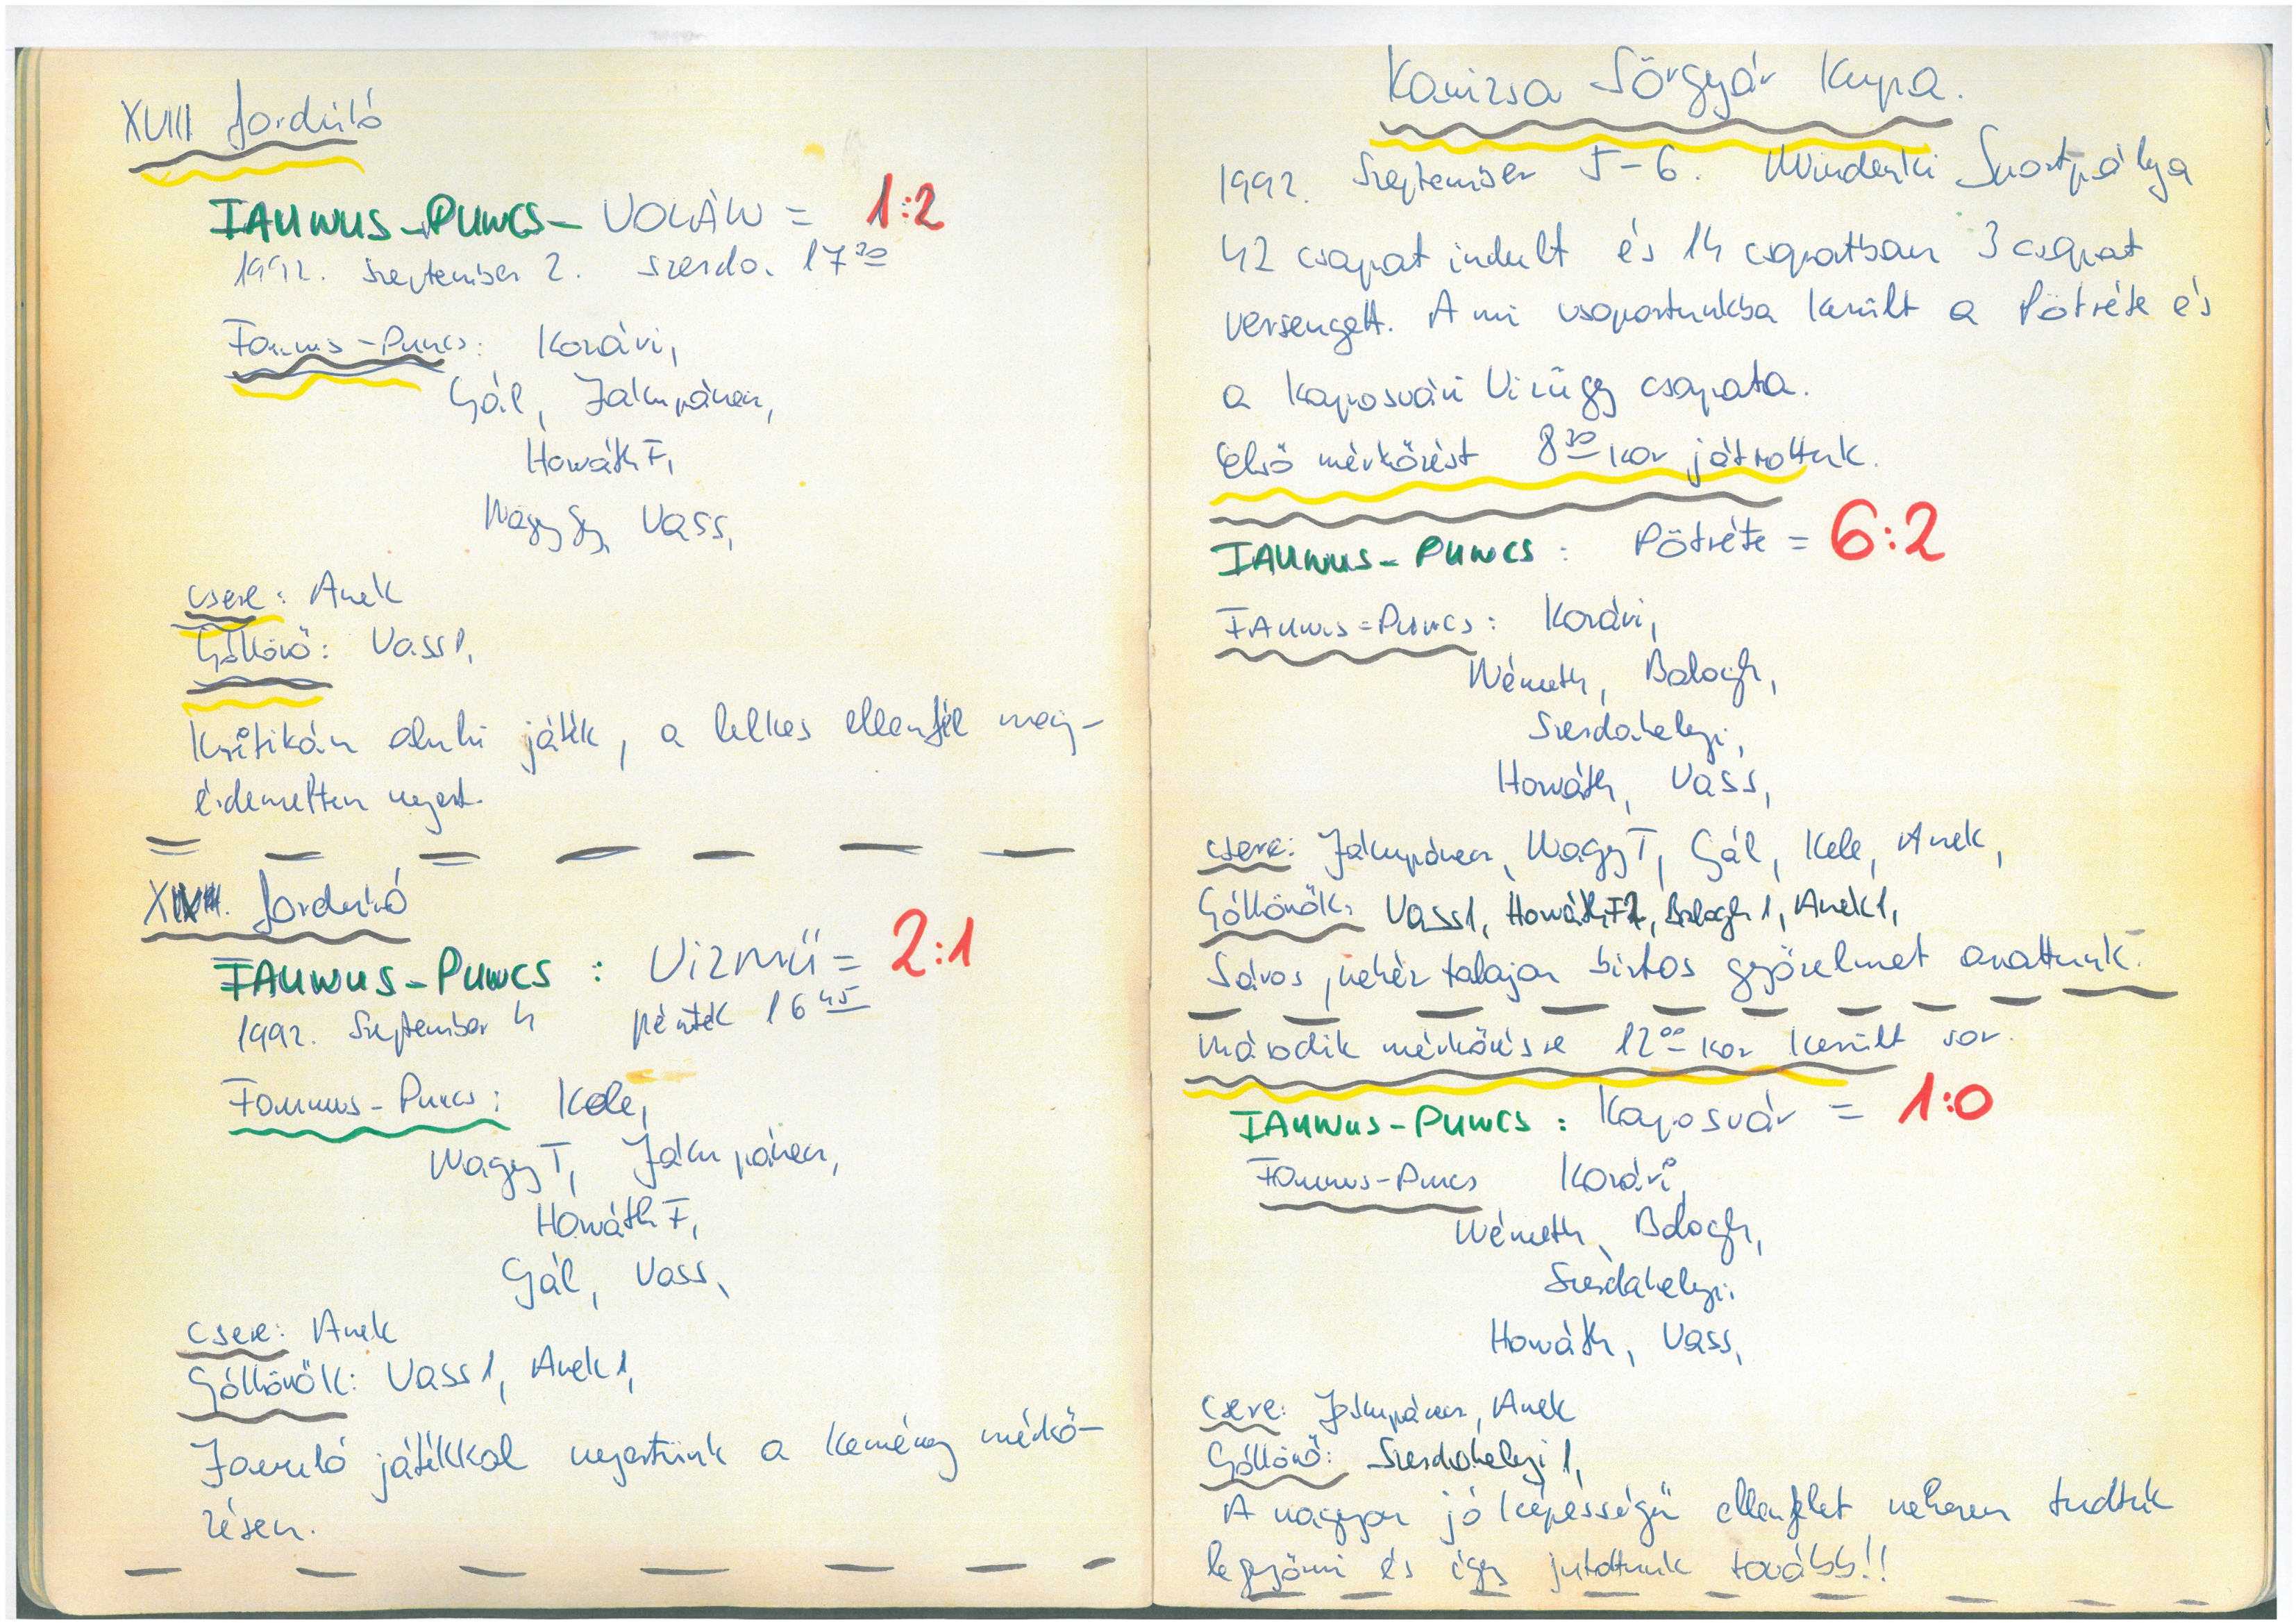 XVIII forduló
TAUNUS-PUNCS- VOLÁN = 1:2
1992. Szeptember 2. szerda. 17 30
Taunus-Puncs: Korávi,
Gál, Jákupánecz,
Horváth F,
Nagy Gy, Vass,
csere: Anek
Góllövő: Vass 1,
Kritikán aluli játék, a lelkes ellenfél meg-
érdemelten nyert.
forduló
TAUNUS-PUNCS : Vizmű = 2:1
1992. Szeptember 4 péntek 16 45
Taunus-Puncs: Kele,
Nagy T, Jákupánecz,
Horváth F,
Gál, Vass,
Csere: Anek
Góllövők: Vass 1, Anek 1,
Javuló játékkal nyertünk a kemény mérkő-
zésen.
Kanizsa Sörgyár Kupa.
1992. Szeptember 5-6. Mindenki Sportpálya
42 csapat indult és 14 csoportban 3 csapat
versengett. A mi csoportunkba került a Pötréte és
a Kaposvári Vizügy csapata.
Első mérkőzést 8 30 kor játszottuk.
TAUNUS-PUNCS : Pötréte = 6:2
TAUNUS=PUNCS : Korávi,
Németh, Balogh,
Szerdahelyi,
Horváth, Vass,
csere: Jákupánecz, Nagy T, Gál, Kele, Anek,
Góllövők: Vass 1, Horváth F, Balogh 1, Anek 1,
Sáros, nehéz talajon biztos győzelmet arattunk.
Második mérkőzésre 12 00 kor került sor.
TAUNUS-PUNCS : Kaposvár = 1:0
Taunus-Puncs Korávi,
Németh, Balogh,
Szerdahelyi,
Horváth, Vass,
Csere: Jákupánecz, Anek
Góllövő: Szerdahelyi 1,
A nagyon jó képességű ellenfelet nehezen tudtuk
legyőzni és így jutottunk tovább!!